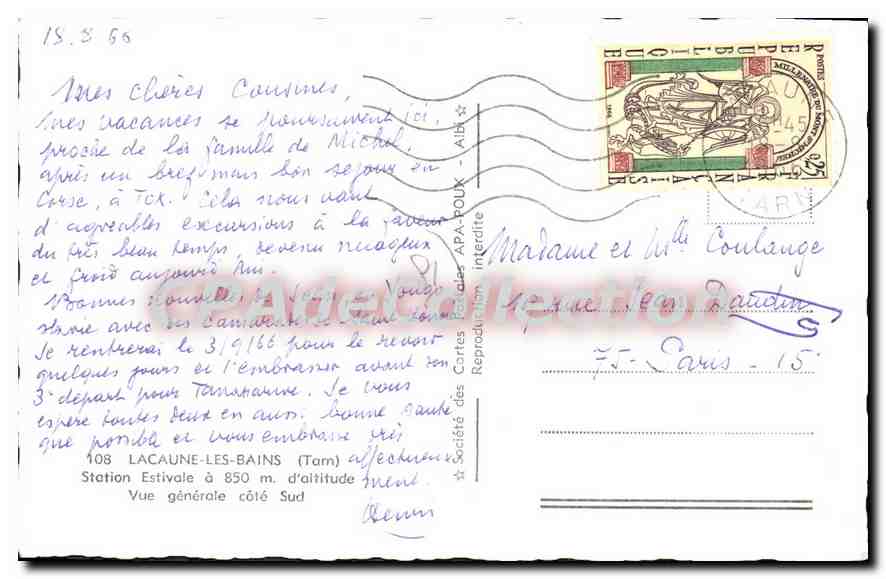 18 8 66
Mes chères Cousines,
Mes vacances se poursuivent ici,
proche de la famille de Michel,
après un bref mais bon séjour en
Corse, à Tox. Cela nous vaut
d'agréables excursions à la faveur
du très beau temps, devenu nuageux
et froid aujourd'hui.
Bonnes nouvelles de
avec ses camarades
Je rentrerai le 3/9/66 pour le revoir
quelques jours et l'embrasser avant son
3e départ pour Tananarive. Je vous
espère toutes deux en aussi bonne santé
que possible et vous embrasse très
affectueuse
ment.
Henri
108 LACAUNE-LES-BAINS (Tarn)
Station Estivale à 850 m. d'altitude
Vue générale côté Sud
☆ Société des Cartes Postales APA-POUX - Albi ☆
Reproduction interdite
REPUBLIQUE
FRANÇAISE
POSTES
MILLENAIRE DU MONT ST MICHEL
0,25
1966
TARN
Madame et Mlle Coulange
rue Jean Daudin
75 - Paris - 15
CPADeCollection